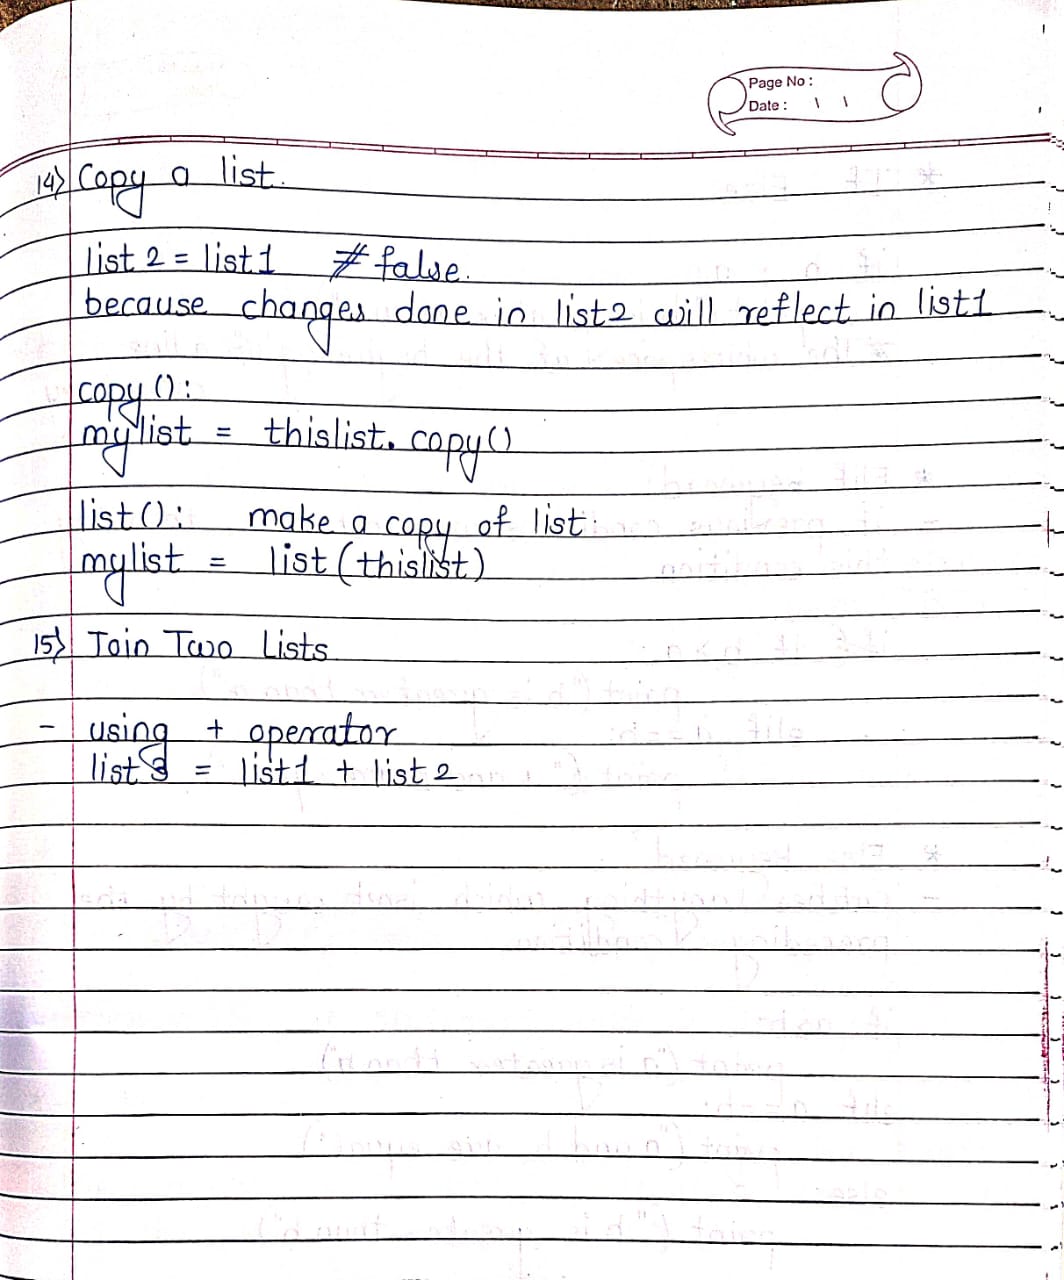 Page No :
Date : \ \
14) Copy a list.
list 2 = list1 # false.
because changes done in list2 will reflect in list1
copy () :
mylist = thislist. copy()
list () : make a copy of list :
mylist = list (thislist)
15) Join Two Lists
- using + operator
list 3 = list1 + list 2